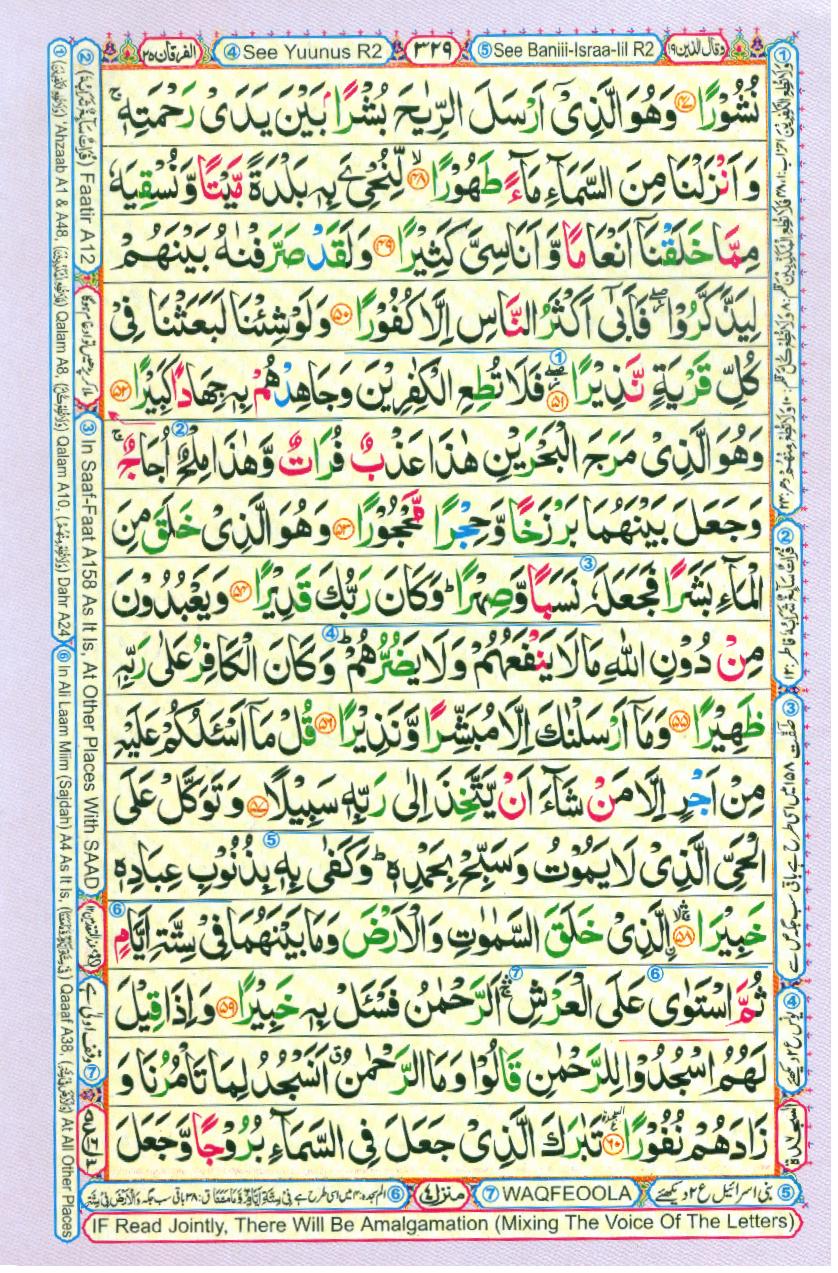 الفرقان ۲۵
④ See Yuunus R2
۳۲۹
⑤ See Baniii-Israa-Iil R2
وقال الذین ۱۹
نُشُوْرًا ﴿۴۷﴾ وَهُوَ الَّذِیْۤ اَرْسَلَ الرِّیٰحَ بُشْرًۢا بَیْنَ یَدَیْ رَحْمَتِهٖ ۚ
وَ اَنْزَلْنَا مِنَ السَّمَآءِ مَآءً طَهُوْرًا ﴿۴۸﴾ ۙ لِّنُحْیَِۧ بِهٖ بَلْدَةً مَّیْتًا وَّ نُسْقِیَهٗ
مِمَّا خَلَقْنَاۤ اَنْعَامًا وَّ اَنَاسِیَّ كَثِیْرًا ﴿۴۹﴾ وَ لَقَدْ صَرَّفْنٰهُ بَیْنَهُمْ
لِیَذَّكَّرُوْا ۖ٘ فَاَبٰۤی اَكْثَرُ النَّاسِ اِلَّا كُفُوْرًا ﴿۵۰﴾ وَ لَوْ شِئْنَا لَبَعَثْنَا فِیْ
كُلِّ قَرْیَةٍ نَّذِیْرًا ﴿۵۱﴾ ① فَلَا تُطِعِ الْكٰفِرِیْنَ وَ جَاهِدْهُمْ بِهٖ جِهَادًا كَبِیْرًا ﴿۵۲﴾
وَ هُوَ الَّذِیْ مَرَجَ الْبَحْرَیْنِ هٰذَا عَذْبٌ فُرَاتٌ وَّ هٰذَا ② مِلْحٌ اُجَاجٌ ۚ
وَ جَعَلَ بَیْنَهُمَا بَرْزَخًا وَّ حِجْرًا مَّحْجُوْرًا ﴿۵۳﴾ وَ هُوَ الَّذِیْ خَلَقَ مِنَ
الْمَآءِ بَشَرًا فَجَعَلَهٗ ③ نَسَبًا وَّ صِهْرًا ؕ وَ كَانَ رَبُّكَ قَدِیْرًا ﴿۵۴﴾ وَ یَعْبُدُوْنَ
مِنْ دُوْنِ اللّٰهِ مَا لَا یَنْفَعُهُمْ وَ لَا یَضُرُّهُمْ ؕ ④ وَ كَانَ الْكَافِرُ عَلٰی رَبِّهٖ
ظَهِیْرًا ﴿۵۵﴾ وَ مَاۤ اَرْسَلْنٰكَ اِلَّا مُبَشِّرًا وَّ نَذِیْرًا ﴿۵۶﴾ قُلْ مَاۤ اَسْـَٔلُكُمْ عَلَیْهِ
مِنْ اَجْرٍ اِلَّا مَنْ شَآءَ اَنْ یَّتَّخِذَ اِلٰی رَبِّهٖ سَبِیْلًا ﴿۵۷﴾ وَ تَوَكَّلْ عَلَی
الْحَیِّ الَّذِیْ لَا یَمُوْتُ وَ سَبِّحْ بِحَمْدِهٖ ؕ ⑤ وَ كَفٰی بِهٖ بِذُنُوْبِ عِبَادِهٖ
خَبِیْرَا ﴿۵۸﴾ ۚۛۙ ِالَّذِیْ خَلَقَ السَّمٰوٰتِ وَ الْاَرْضَ وَ مَا بَیْنَهُمَا فِیْ سِتَّةِ اَیَّامٍ ⑥
ثُمَّ اسْتَوٰی ⑥ عَلَی الْعَرْشِ ۚۛ ⑦ اَلرَّحْمٰنُ فَسْـَٔلْ بِهٖ خَبِیْرًا ﴿۵۹﴾ وَ اِذَا قِیْلَ
لَهُمُ اسْجُدُوْا لِلرَّحْمٰنِ قَالُوْا وَ مَا الرَّحْمٰنُ ۗ اَنَسْجُدُ لِمَا تَاْمُرُنَا وَ
زَادَهُمْ نُفُوْرًا ﴿۶۰﴾ تَبٰرَكَ الَّذِیْ جَعَلَ فِی السَّمَآءِ بُرُوْجًا وَّ جَعَلَ
② Faatir A12
③ In Saaf-Faat A158 As It Is, At Other Places With SAAD
① 'Ahzaab A1 & A48, Qalam A8, Qalam A10, Dahr A24
⑥ In Ali Laam Miim (Sajdah) A4 As It Is, Qaaaf A38, At All Other Places
⑤ بنی اسرائیل ع ۲ دیکھئے
⑦ WAQFEOOLA
منزل ۴
IF Read Jointly, There Will Be Amalgamation (Mixing The Voice Of The Letters)